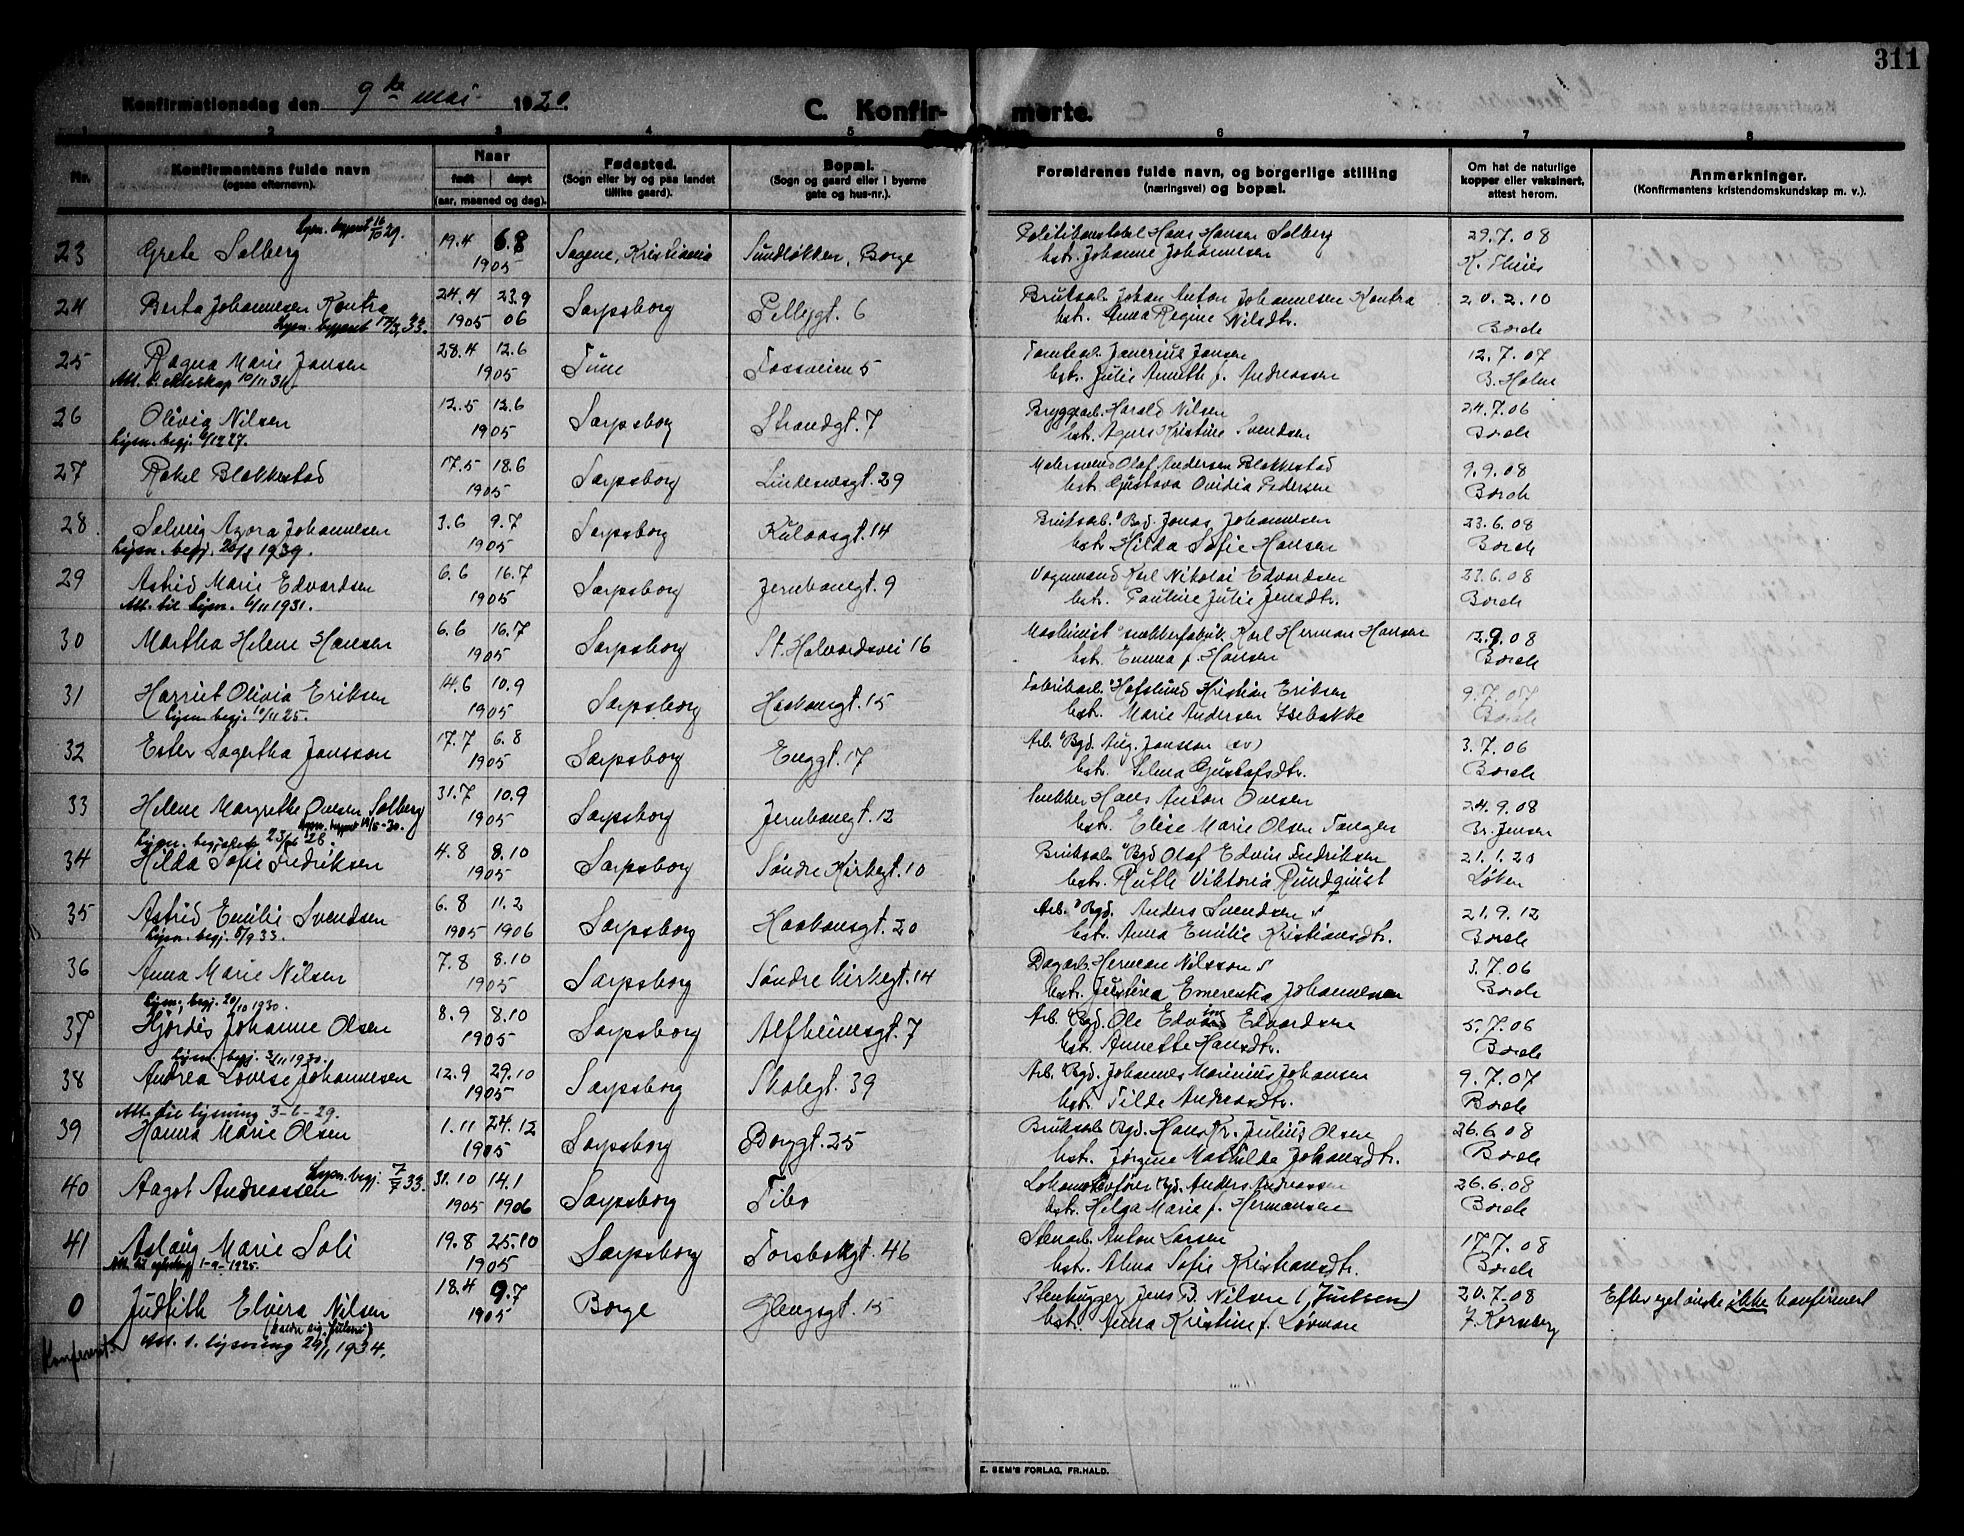 311
Konfirmationsdag den 9de mai 1920
C. Konfirmerte.
1 2 3 4 5 6 7 8
Nr.
Konfirmantens fulde navn
(ogsaa efternavn).
Naar
født døpt
(aar, maaned og dag).
Fødested.
(Sogn eller by og paa landet
tillike gaard).
Bopæl.
(Sogn og gaard eller i byerne
gate og hus-nr.).
Forældrenes fulde navn, og borgerlige stilling
(næringsvei) og bopæl.
Om hat de naturlige
kopper eller vaksinert,
attest herom.
Anmerkninger.
(Konfirmantens kristendomskundskap m. v.).
Lysn. begjært 16/10 29.
23 Grete Solberg 19.4 6.8 1905 Sagene, Kristiania Sundløkken, Borge Politikonstabel Hans Hansen Solberg 29.7.08
hstr. Johanne Johannesen K. Thiis
24 Berta Johannesen Kontra 24.4 1905 23.9 06 Sarpsborg Pellygt. 6 Bruksarb. Johan Anton Johannesen Kontra 20.2.10
Lysn. begjært 17/3 33. hstr. Anna Regine Nilsdtr. Borch
25 Ragna Marie Jansen 28.4 12.6 1905 Tune Fossveien 5 Tomtearb. Janerius Jansen 12.7.07
Att. t. ekteskap 10/11 34. hstr. Julie Annette f. Andreassen B. Holm
26 Olivia Nilsen 12.5 12.6 1905 Sarpsborg Strandgt. 7 Bryggearb. Harald Nilsen 24.7.06
Lysn. begj. 6/12 27. hstr. Agnes Kristine Svendsen Borch
27 Rakel Blakkestad 17.5 18.6 1905 Sarpsborg Lindemsgt. 29 Malersvend Olaf Andersen Blakkestad 9.9.08
hstr. Gustava Ovidia Pedersen Borch
28 Solveig Agora Johannesen 3.6 9.7 1905 Sarpsborg Kulaasgt. 14 Bruksarb. Bgd. Jonas Johannesen 23.6.08
Lysn. begj. 26/8 1939. hstr. Hilda Sofie Hansen Borch
29 Astrid Marie Edvardsen 6.6 16.7 1905 Sarpsborg Jernbanegt. 9 Vognmand Karl Nikolai Edvardsen 23.6.08
Att. til lysn. 6/11 1931. hstr. Pauline Julie Jensdtr. Borch
30 Martha Helene Hansen 6.6 16.7 1905 Sarpsborg St. Halvardsvei 16 Maskinist snekkerfabrik. Karl Herman Hansen 12.9.08
hstr. Emma f. Hansen Borch
31 Harriet Olivia Eriksen 14.6 10.9 1905 Sarpsborg Haakonsgt. 15 Fabrikarb. Hafslund Kristian Eriksen 9.7.07
Lysn. begj. 10/11 25. hstr. Marie Andersen Isebakke Borch
32 Ester Lagertha Jansson 17.7 6.8 1905 Sarpsborg Enggt. 17 Arb. Bgd. Aug. Jansson (sv) 3.7.06
hstr. Selma Gustafsdtr. Borch
33 Helene Margrethe Onesen Solberg 31.7 10.9 1905 Sarpsborg Jernbanegt. 12 Snekker Hans Anton Onesen 24.9.08
Lysn. begjært 19/5-30. hstr. Elise Marie Olsen Tangen Br. Jensen
Lysn. begjært 23/10 26.
34 Hilda Sofie Fredriksen 4.8 8.10 1905 Sarpsborg Søndre Kirkegt. 10 Bruksarb. Bgd Olaf Edvin Fredriksen 21.1.20
hstr. Ruth Viktoria Rundquist Løken
35 Astrid Emilie Svendsen 6.8 1905 11.2 1906 Sarpsborg Haakonsgt. 20 Arb. Bgd. Anders Svendsen s 21.9.12
Lysn. begj. 5/9 33. hstr. Anna Emilie Kristiansdtr. Borch
36 Anna Marie Nilsen 7.8 8.10 1905 Sarpsborg Søndre Kirkegt. 14 Dagarb. Herman Nilsson s 3.7.06
hstr. Emerentia Johannesen Borch
Lysn. begj. 20/10 1930.
37 Hjørdis Johanne Olsen 8.9 8.10 1905 Sarpsborg Alfheimsgt. 7 Arb. Bgd. Ole Edvin Edvardsen 5.7.06
hstr. Annette Hansdtr. Borch
Lysn. begj. 3/11 1930.
38 Andrea Lovise Johannesen 12.9 29.10 1905 Sarpsborg Skolegt. 39 Arb. Bgd. Johannes Marinius Johansen 9.7.07
hstr. Tilde Andreasdtr. Borch
Att. til lysning 3-6-29.
39 Hanna Marie Olsen 1.11 24.12 1905 Sarpsborg Borggt. 25 Bruksarb. Bgd. Hans Kr. Julius Olsen 26.6.08
hstr. Jørgine Mathilde Johansdtr. Borch
Lysn. begj. 7/7 33.
40 Aagot Andreassen 31.10 1905 14.1 1906 Sarpsborg Tibo Lokomotivfører Bgd. Anders Andreassen 26.6.08
hstr. Helga Marie f. Hermansen Borch
41 Aslaug Marie Soli 19.8 25.10 1905 Sarpsborg Torsbekgt. 46 Stenarb. Anton Larsen 17.7.08
Att. til egteskap 1-9-1925. hstr. Alma Sofie Kristiansdtr. Borch
0 Judith Elvira Nilsen 18.4 9.7 1905 Borge Glengsgt. 15 Stenhugger Jens B. Nilsen (Juelsen) 20.7.08 Efter eget ønske ikke konfirmert
(kalder sig Julsen) hstr. Anna Kristine f. Løvman J. Kornberg
Att. t. lysning 29/1 1934.
E. SEM'S FORLAG, FR.HALD.